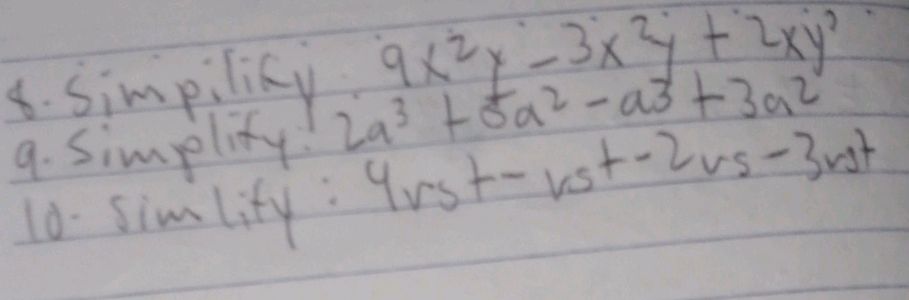 8. Simpilify: 9x²y - 3x²y + 2xy²
9. Simplify: 2a³ + 5a² - a3 + 3a²
10. simlify: 4rst - rst - 2rs - 3rst